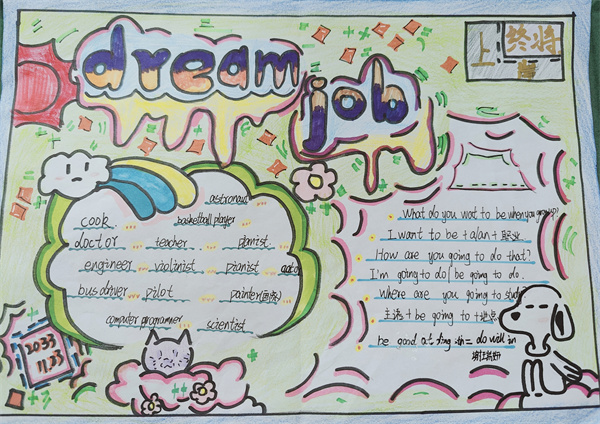 dream
job
上 终将
astronaut
cook basketball player
doctor teacher pianist
engineer violinist pianist
bus driver pilot painter(画家)
computer programmer scientist
2033
11.23
What do you want to be when you grow up?
I want to be +a/an+职业
How are you going to do that?
I'm going to do/ be going to do.
Where are you going to study?
主语+be going to +地点
be good at = do well in